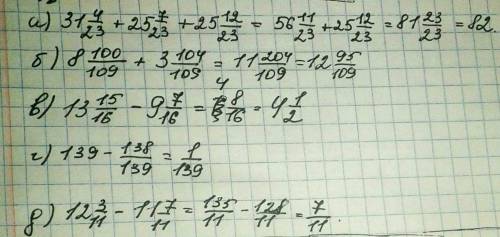 а) 31 4/23 + 25 7/23 + 25 12/23 = 56 11/23 + 25 12/23 = 81 23/23 = 82.
б) 8 100/109 + 3 104/109 = 11 204/109 = 12 95/109
в) 13 15/16 - 9 7/16 = 4 8/16 = 4 1/2
г) 139 - 138/139 = 1/139
д) 12 3/11 - 11 7/11 = 135/11 - 128/11 = 7/11.